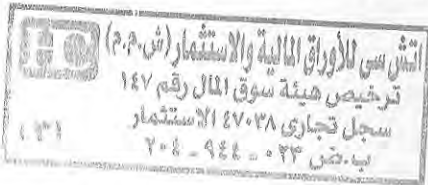 اتش سي للأوراق المالية والاستثمار (ش.م.م)
ترخيص هيئة سوق المال رقم ١٤٧
سجل تجارى ٤٧٠٣٨ الاستثمار
ب.ض ٠٢٣ - ٩٤٤ - ٢٠٤